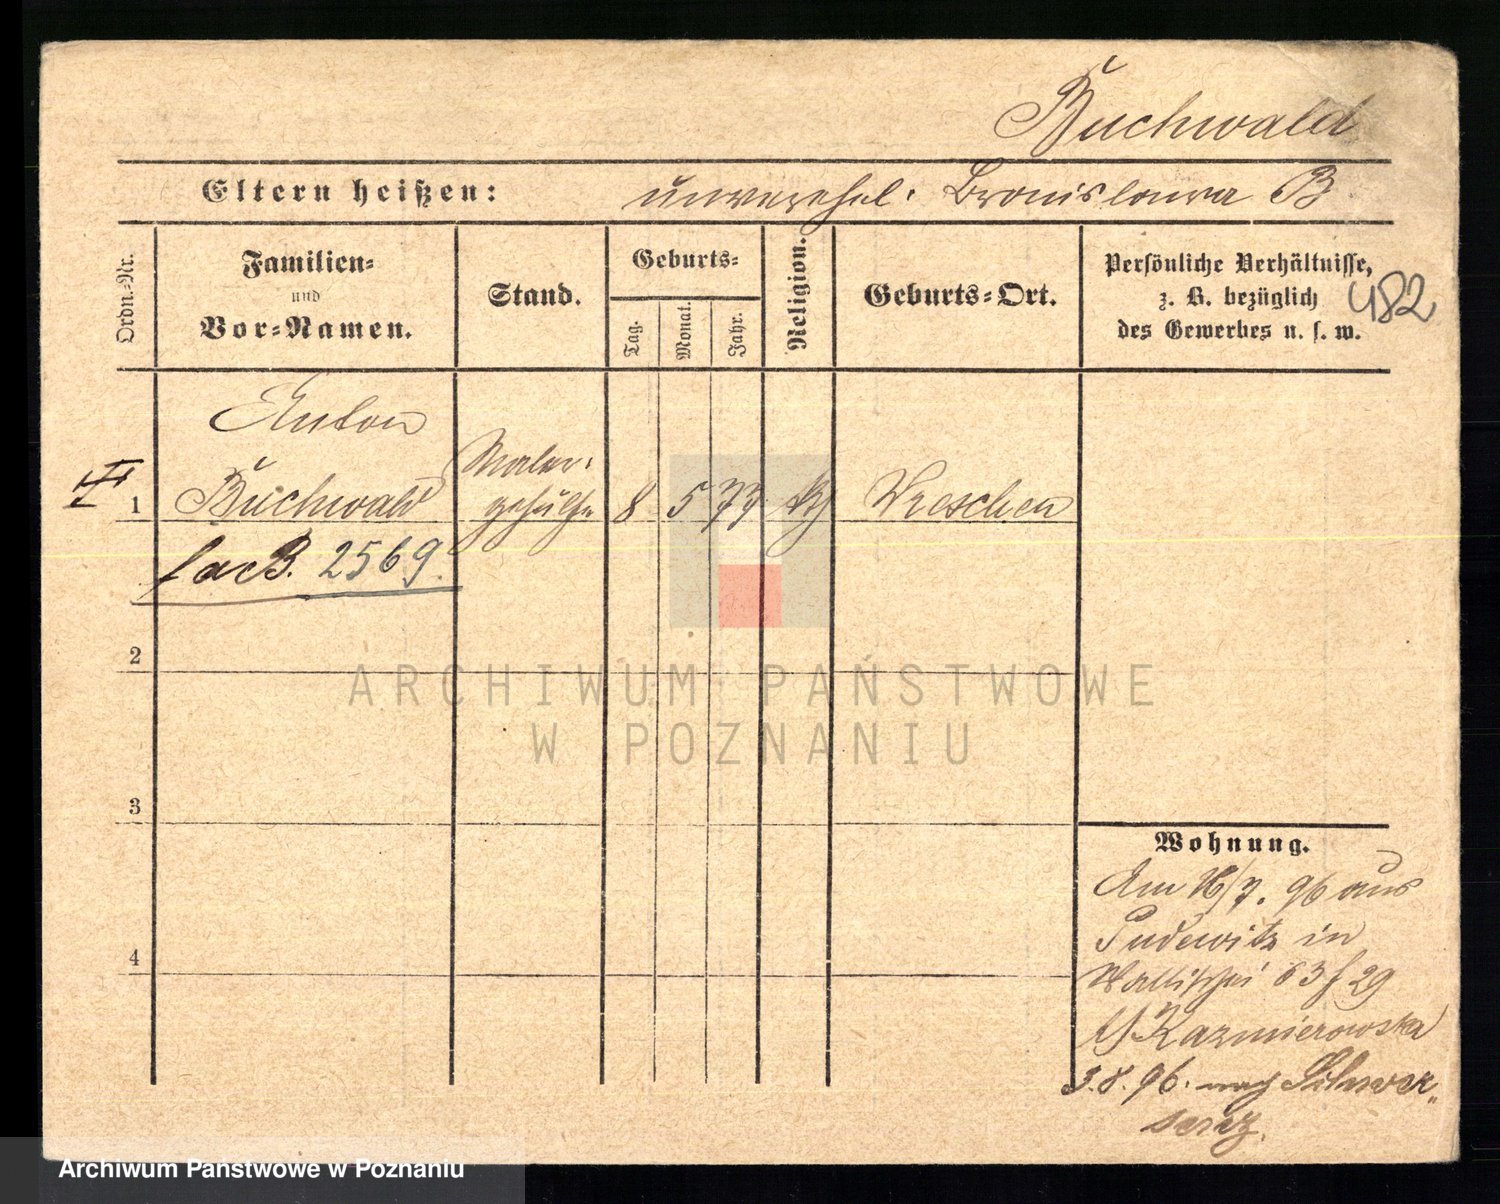 Buchwald
Eltern heißen: unverehel. Bronislawa B
Ordn.-Nr.
Familien-
und
Vor-Namen.
Stand.
Geburts-
Tag.
Monat.
Jahr.
Religion.
Geburts-Ort.
Persönliche Verhältnisse,
z. B. bezüglich
des Gewerbes u. s. w.
482
Anton
Maler-
II
1 Buchwald gehülfe 8 5 77 kth Wreschen
fac B. 2569.
2
3
4
Wohnung.
Am 16/7. 96 aus
Pudewitz in
Wallischei 63 f 29
b/ Kazmierowska
3.8.96. nach
ARCHIWUM PAŃSTWOWE
W POZNANIU
Archiwum Państwowe w Poznaniu